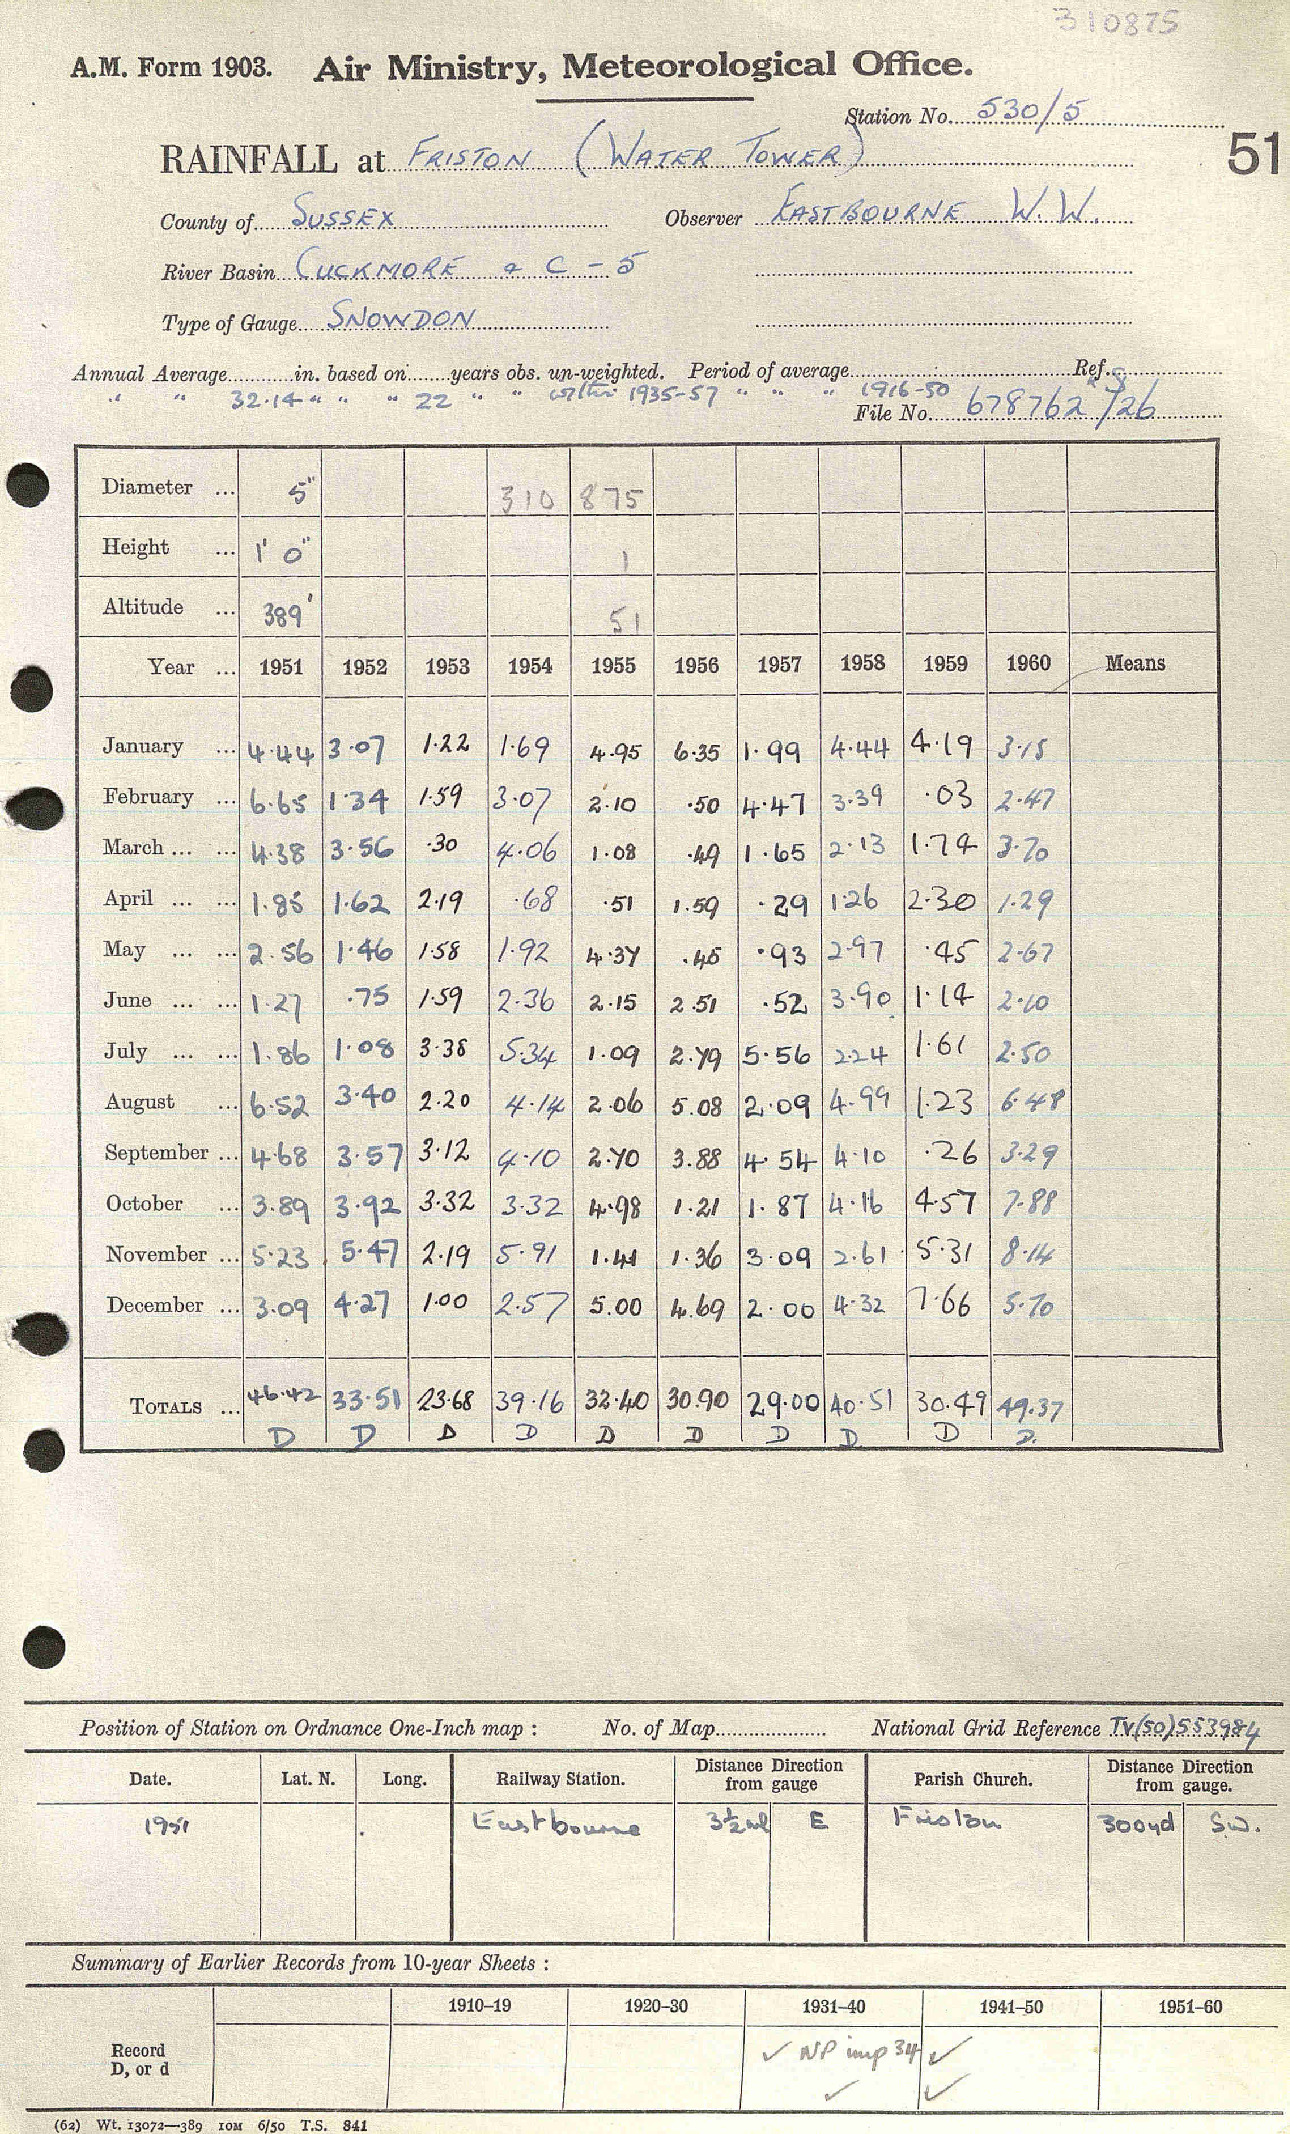 310875
A.M. Form 1903. Air Ministry, Meteorological Office.
Station No. 530/5
RAINFALL at FRISTON (WATER TOWER)
51
County of SUSSEX Observer EASTBOURNE W.W.
River Basin CUCKMORE & C - 5
Type of Gauge SNOWDON
Annual Average in. based on years obs. un-weighted. Period of average Ref.
" " 32.14 " " " 22 " " 1935-57 " " " 1916-50 "
File No. 678762/26
Diameter ... 5" 310 875
Height ... 1' 0" 1
Altitude ... 389' 51
Year ... 1951 1952 1953 1954 1955 1956 1957 1958 1959 1960 Means
January ... 4.44 3.07 1.22 1.69 4.95 6.35 1.99 4.44 4.19 3.15
February ... 6.65 1.34 1.59 3.07 2.10 .50 4.47 3.39 .03 2.47
March ... ... 4.38 3.56 .30 4.06 1.08 .49 1.65 2.13 1.74 3.70
April ... ... 1.85 1.62 2.19 .68 .51 1.59 .29 1.26 2.30 1.29
May ... ... 2.56 1.46 1.58 1.92 4.37 .45 .93 2.97 .45 2.67
June ... ... 1.27 .75 1.59 2.36 2.15 2.51 .52 3.90 1.14 2.10
July ... ... 1.86 1.08 3.38 5.34 1.09 2.79 5.56 2.24 1.61 2.50
August ... 6.52 3.40 2.20 4.14 2.06 5.08 2.09 4.99 1.23 6.48
September ... 4.68 3.57 3.12 4.10 2.70 3.88 4.54 4.10 .26 3.29
October ... 3.89 3.92 3.32 3.32 4.98 1.21 1.87 4.16 4.57 7.88
November ... 5.23 5.47 2.19 5.91 1.41 1.36 3.09 2.61 5.31 8.14
December ... 3.09 4.27 1.00 2.57 5.00 4.69 2.00 4.32 7.66 5.70
TOTALS ... 46.42 33.51 23.68 39.16 32.40 30.90 29.00 40.51 30.49 49.37
D D D D D D D D D D.
Position of Station on Ordnance One-Inch map : No. of Map National Grid Reference TV(50)553984
Date. Lat. N. Long. Railway Station. Distance Direction from gauge Parish Church. Distance Direction from gauge.
1951 Eastbourne 3½ml E Friston 300yd SW.
Summary of Earlier Records from 10-year Sheets :
1910–19 1920–30 1931–40 1941–50 1951–60
Record
D, or d
✓ NP imp 34 ✓
✓ ✓
(62) Wt. 13072—389 10M 6/50 T.S. 841